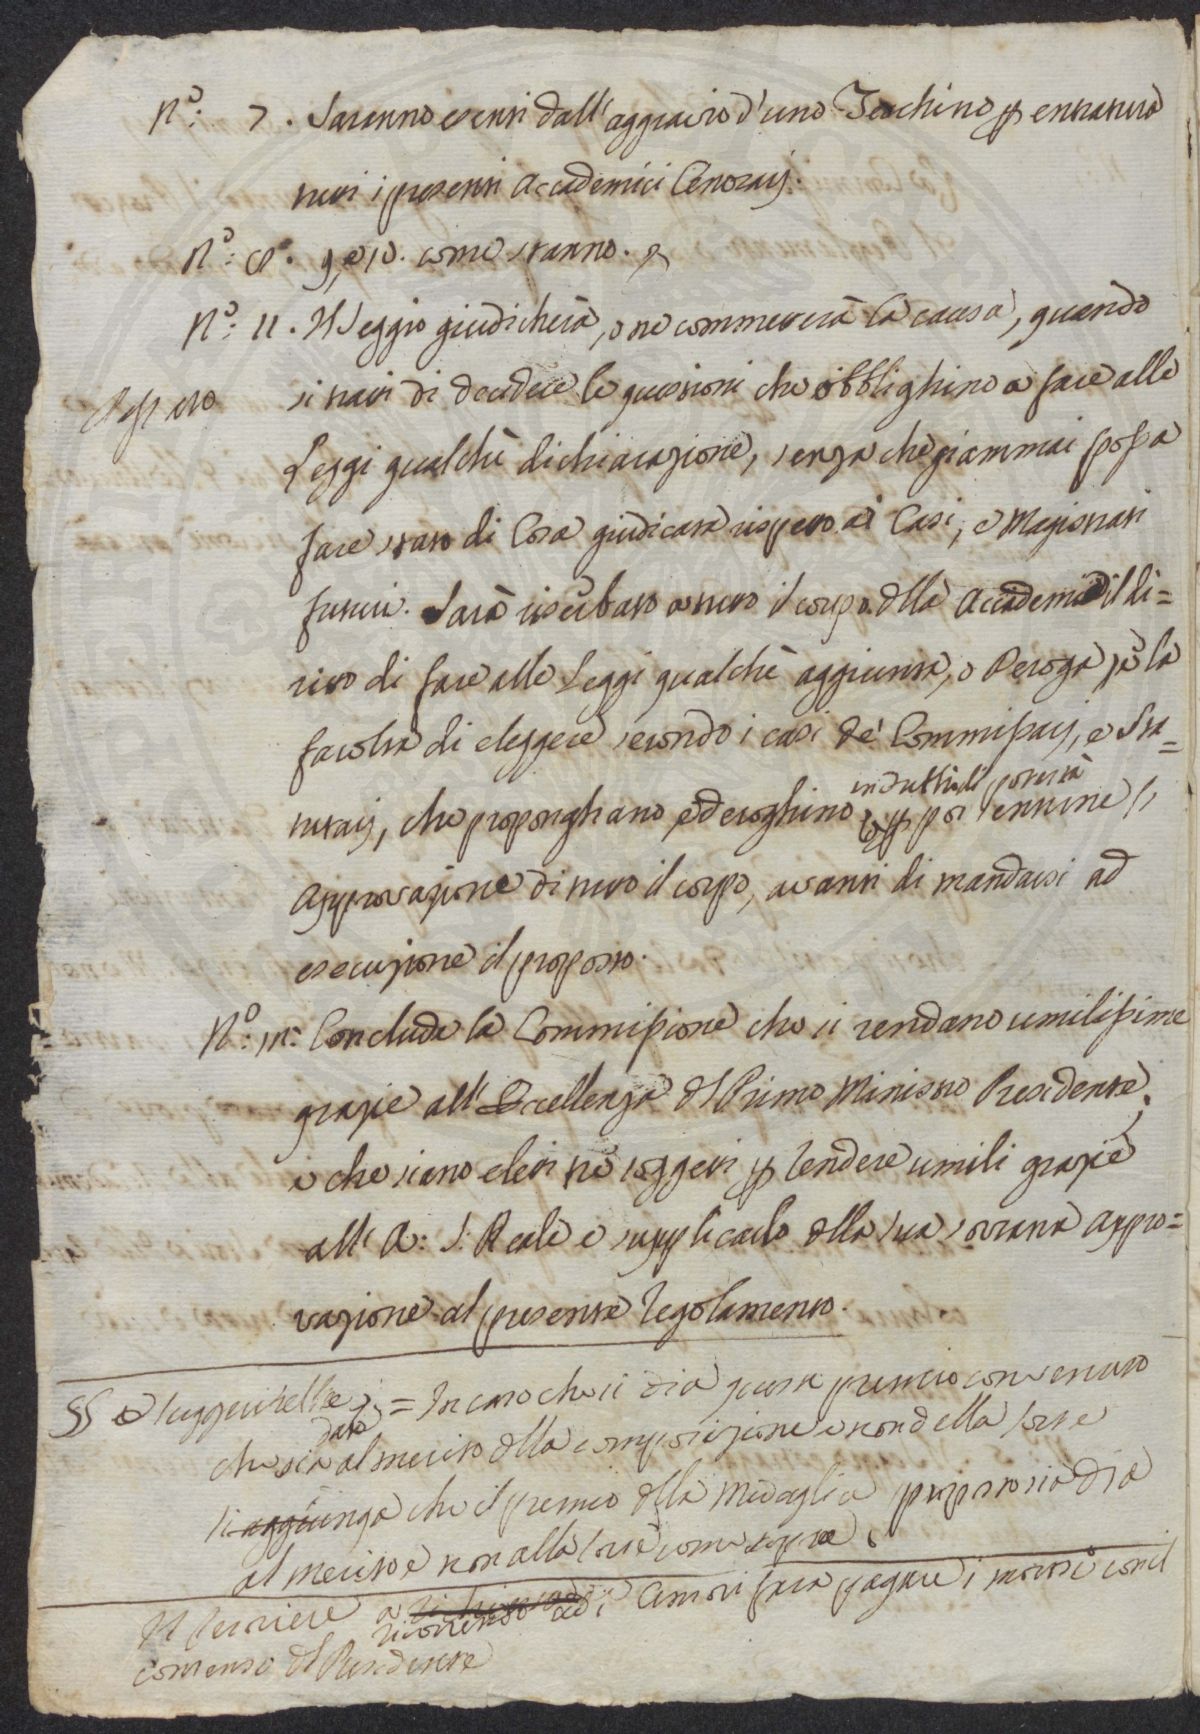 N.º: 7. Saranno esenti dall' aggravio d'uno Zecchino per entratura
tutti i presenti Accademici Censorij.
N.º: 8. 9, e 10. come stanno.
N.º: 11. Il Seggio giudicherà, o ne commetterà la causa, quando
si tratti di decidere le questioni che obblighino a fare alle
Leggi qualchè dichiarazione, senza chè giammai possa
fare stato di Cosa giudicata rispetto ai Casi, e Magistrati
futuri. Sarà riserbato a tutto il corpo della Accademia il di=
ritto di fare alle Leggi qualchè aggiunta, o Deroga per la
facoltà di eleggere secondo i casi de' Commissarj, e Sta=
tutarj, che proponghano, e deroghino
in dubbi di
approvazione di tutto il corpo, avanti di mandarsi ad
esecuzione il proposto.
N.º: 12. Conclude la Commissione che si rendano umilissime
grazie all' Eccellenza del Primo Ministro Presidente,
e che siano eletti tre soggetti per rendere umili grazie
all' A: S. Reale e supplicarlo della sua sovrana appro=
vazione al presente regolamento.
= In caso che si dia premio conveniro
data
che sia al merito della composizione e non della sorte
si aggiunga che il premio della Medaglia proposto sia dia
al merito e non alla sorte come sopra
Il farà pagare i morosi con il
ricorrendo
consenso del Presidente